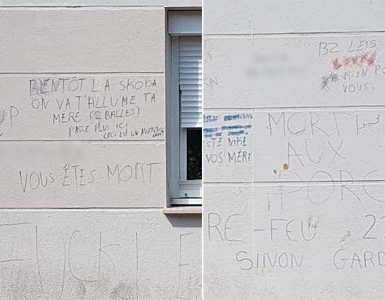 BIENTÔT LA SKODA
ON VA T'ALLUMÉ TA
MÈRE (12 BALLES)
PASSE PLUS ICI
CECI EST UN AVERT
VOUS ÊTES MORT
FUCK
BZ LEIS
BIEN PO
VOUS.
STE NIKE
VOS MÈRE
MORT
AUX
PORC
RE-FEU 2
SINON GARD